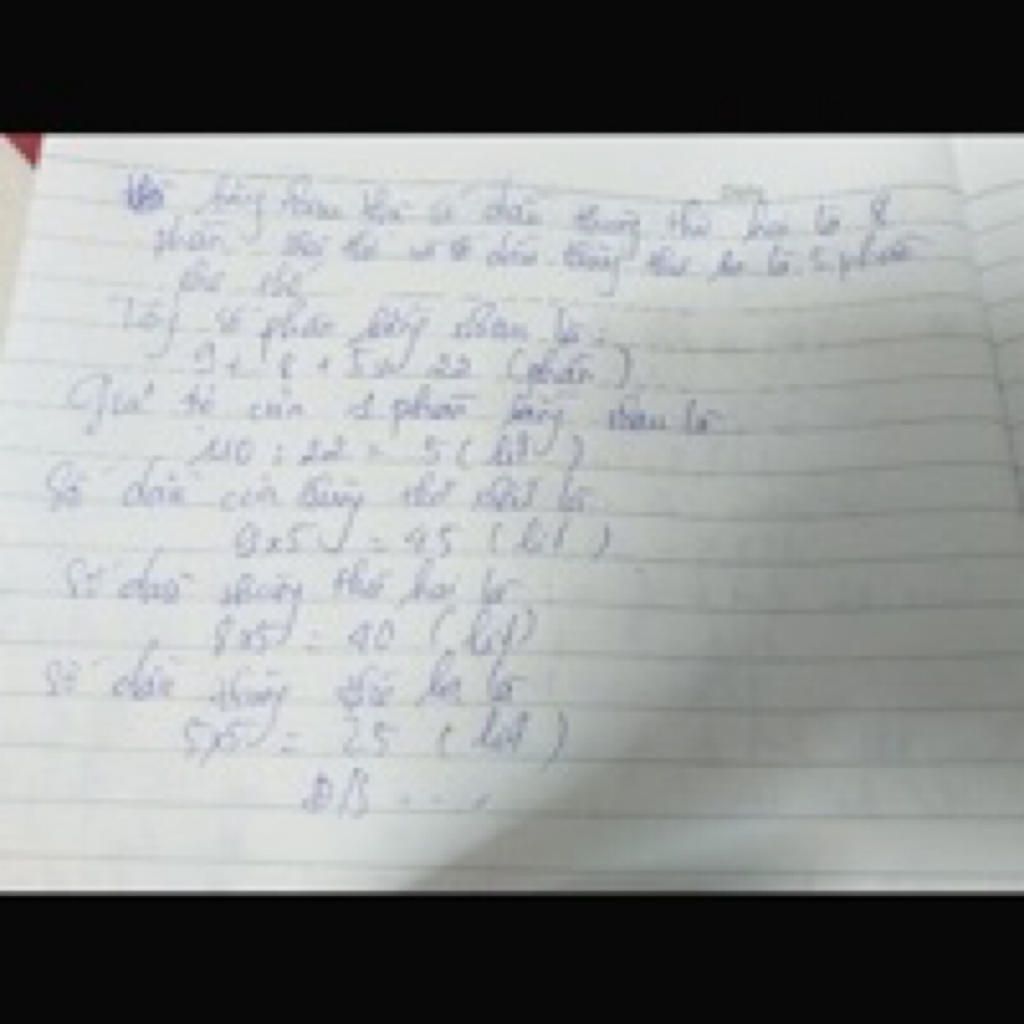 bằng nhau thì số dầu thùng thứ hai là 8
phần thì số dầu thùng thứ ba là 5 phần
như thế
Tổng số phần bằng nhau là:
9 + 8 + 5 = 22 (phần)
Giá trị của 1 phần bằng nhau là
110 : 22 = 5 (lít)
Số dầu của thùng thứ nhất là
9 x 5 = 45 (lít)
Số dầu thùng thứ hai là
8 x 5 = 40 (lít)
Số dầu thùng thứ ba là
5 x 5 = 25 (lít)
Đ/S . . .